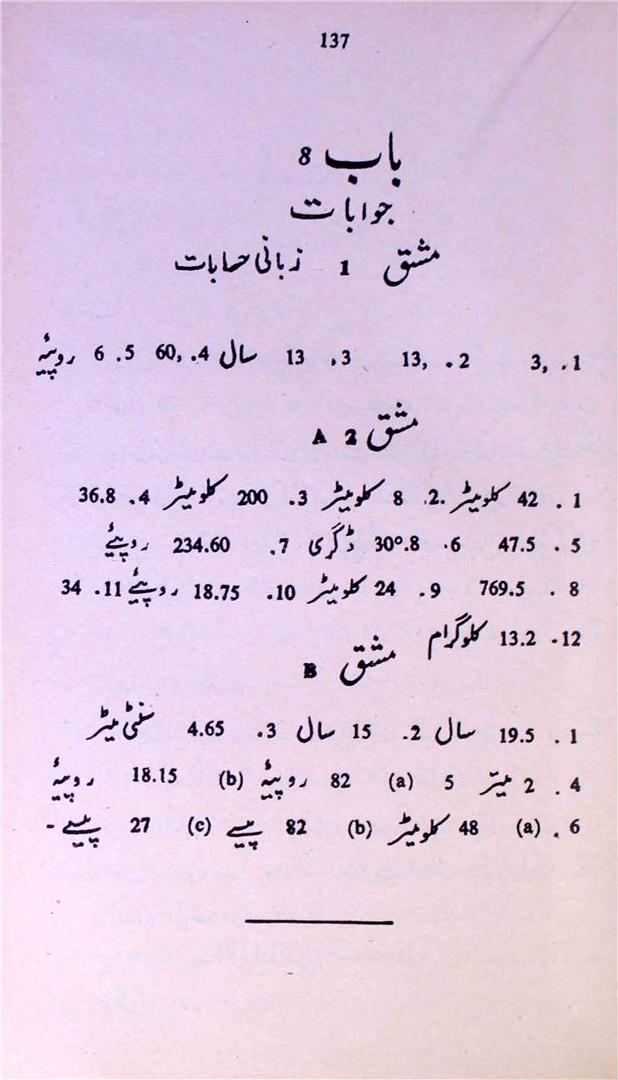 137
باب 8
جوابات
مشق 1 زبانی حسابات
1. ,3 2. ,13 3. 13 سال 4. ,60 5. 6 روپیۂ
مشق 2 A
1. 42 کلومیٹر 2. 8 کلومیٹر 3. 200 کلومیٹر 4. 36.8
5. 47.5 6. 30°.8 ڈگری 7. 234.60 روپیۓ
8. 769.5 9. 24 کلومیٹر 10. 18.75 روپیۓ 11. 34
12. 13.2 کلوگرام
مشق B
1. 19.5 سال 2. 15 سال 3. 4.65 سنٹی میٹر
4. 2 میٹر 5 (a) 82 روپیۂ (b) 18.15 روپیۂ
6. (a) 48 کلومیٹر (b) 82 پیسے (c) 27 پیسے ۔